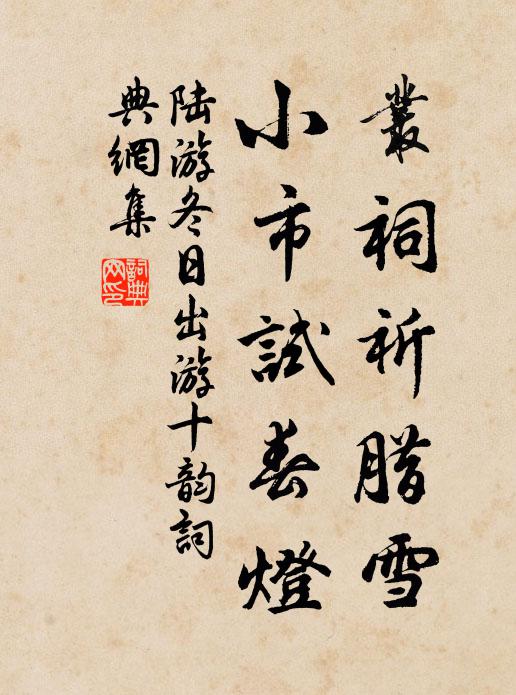 叢祠祈腊雪
小市試春燈
陆游冬日出游十韵詞
典網集
詞典
网印